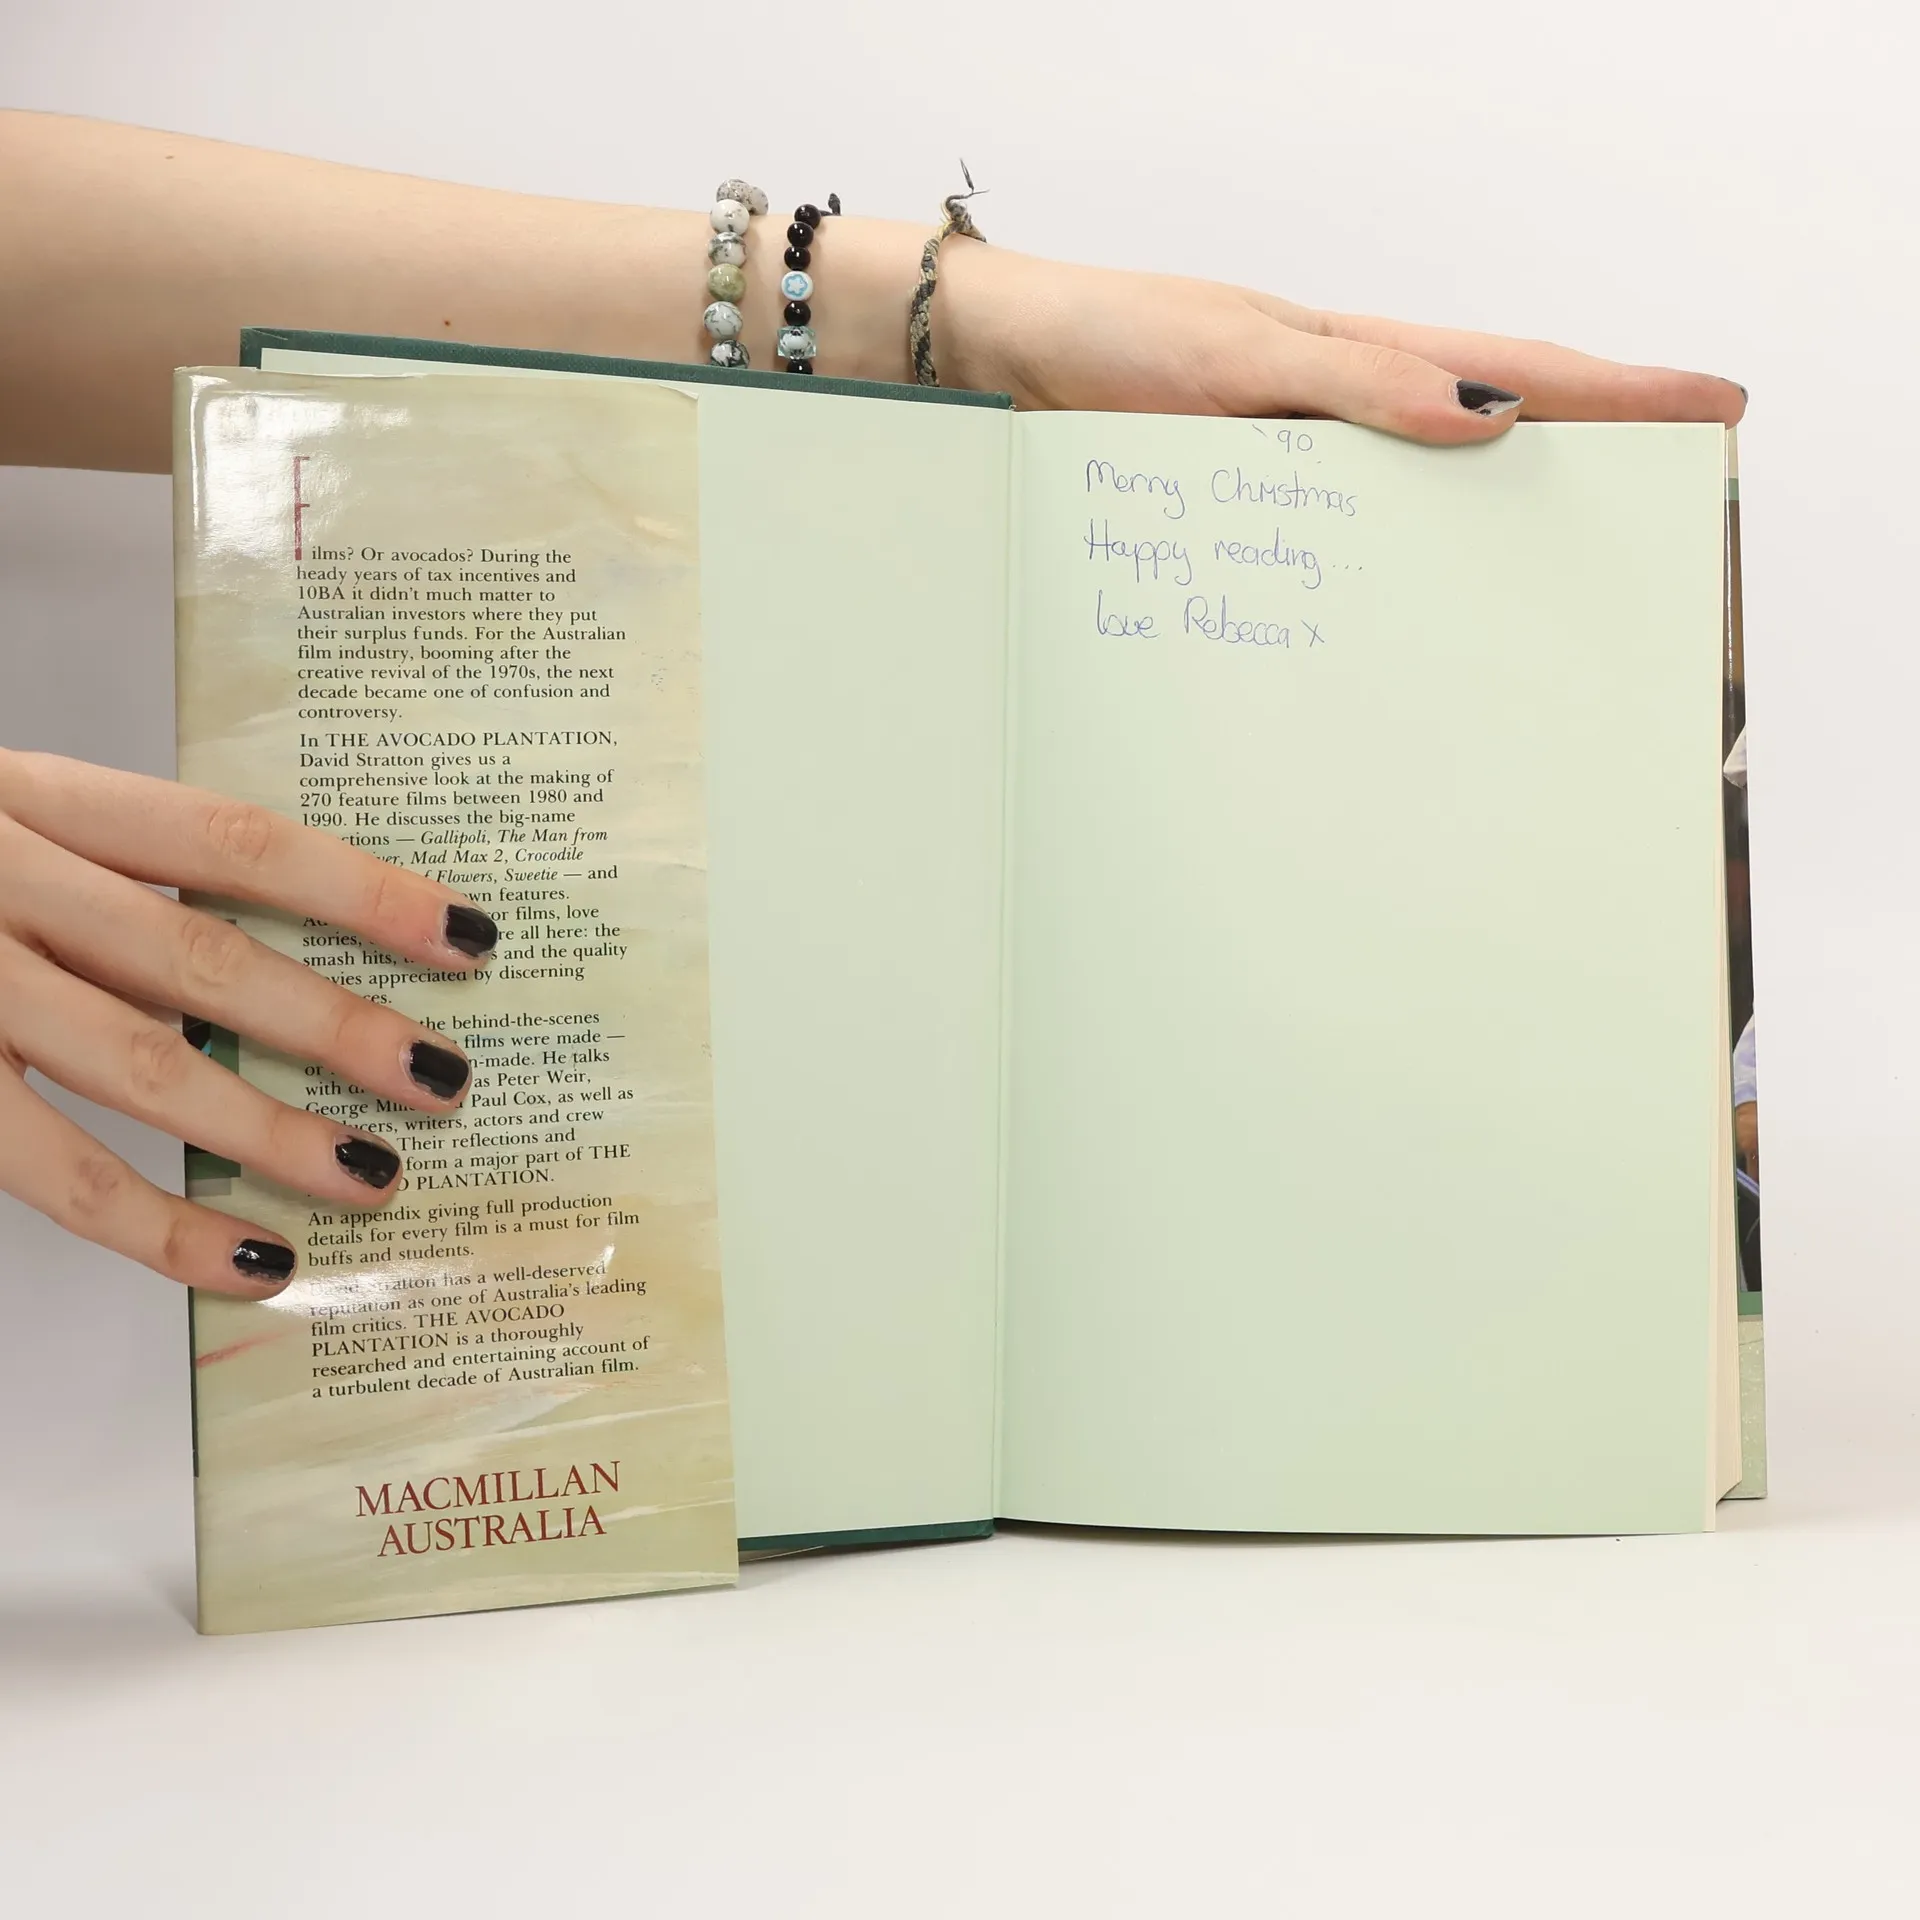 Films? Or avocados? During the
heady years of tax incentives and
10BA it didn't much matter to
Australian investors where they put
their surplus funds. For the Australian
film industry, booming after the
creative revival of the 1970s, the next
decade became one of confusion and
controversy.
In THE AVOCADO PLANTATION,
David Stratton gives us a
comprehensive look at the making of
270 feature films between 1980 and
1990. He discusses the big-name
— Gallipoli, The Man from
Mad Max 2, Crocodile
Flowers, Sweetie — and
features.
films, love
stories, all here: the
smash hits, and the quality
appreciated by discerning
the behind-the-scenes
films were made —
or He talks
with as Peter Weir,
George Paul Cox, as well as
writers, actors and crew
Their reflections and
form a major part of THE
PLANTATION.
An appendix giving full production
details for every film is a must for film
buffs and students.
David Stratton has a well-deserved
reputation as one of Australia's leading
film critics. THE AVOCADO
PLANTATION is a thoroughly
researched and entertaining account of
a turbulent decade of Australian film.
MACMILLAN
AUSTRALIA
`90.
Merry Christmas
Happy reading...
love Rebecca x